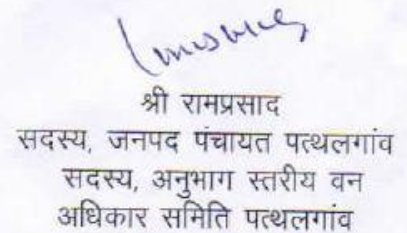 श्री रामप्रसाद
सदस्य, जनपद पंचायत पत्थलगांव
सदस्य, अनुभाग स्तरीय वन
अधिकार समिति पत्थलगांव